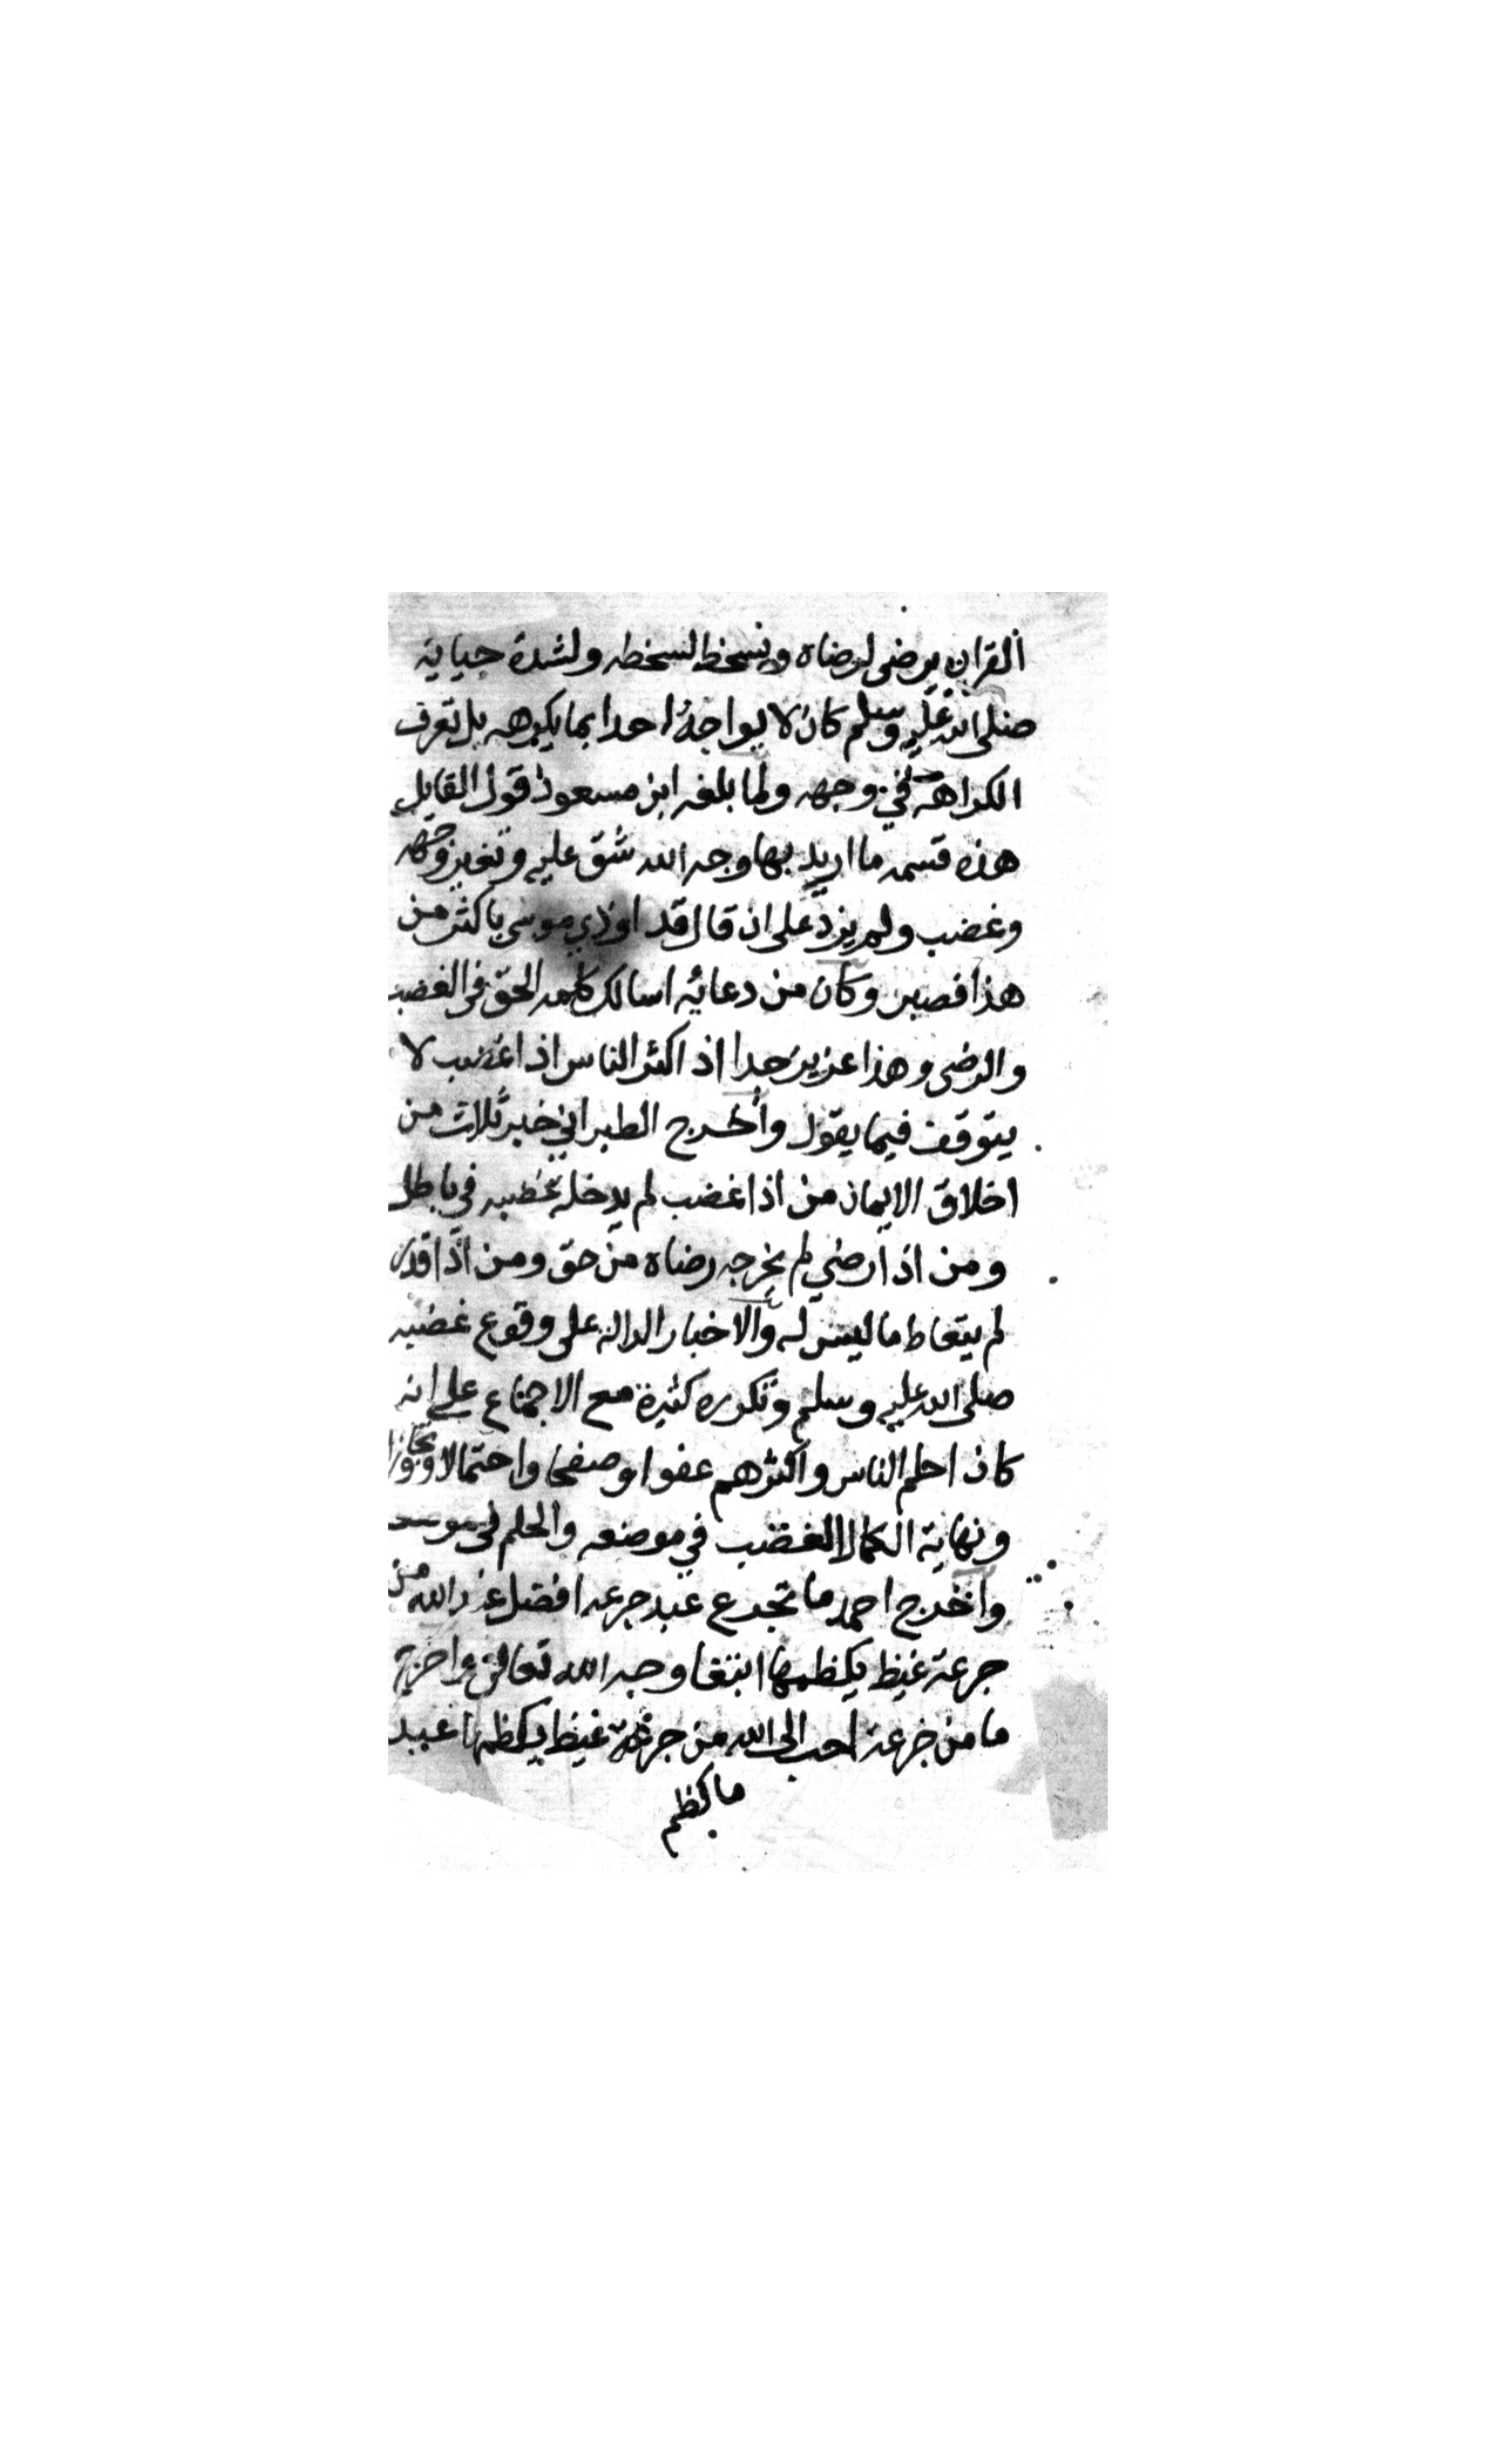 القران يرضى لرضاه ويسخط لسخطه ولشدة حيايه
صلى الله عليه وسلم كان لا يواجه احدا بما يكرهه بل تعرف
الكراهة في وجهه ولما بلغه ابن مسعود قول القايل
هذه قسمه ما اريد بها وجه الله شق عليه وتغير وجهه
وغضب ولم يزد على ان قال قد اوذي موسى باكثر من
هذا فصبر وكان من دعائه اسالك كلمه الحق في الغضب
والرضى وهذا عزيز جدا اذ اكثر الناس اذا غضب لا
يتوقف فيما يقول واخرج الطبراني خبر ثلاث من
اخلاق الايمان من اذا غضب لم يدخله غضبه في باطل
ومن اذا رضي لم يخرجه رضاه من حق ومن اذا قدر
لم يتعاط ما ليس له والاخبار الداله على وقوع غضبه
صلى الله عليه وسلم وتكرره كثيرة مع الاجماع على انه
كان احلم الناس واكثرهم عفوا وصفحا واحتمالا وتجاوزا
ونهاية الكمال الغضب في موضعه والحلم في
واخرج احمد ما تجرع عبد جرعه افضل عند الله من
جرعة غيظ يكظمها ابتغا وجه الله تعالى واخرج
ما من جرعة احب الى الله من جرعة غيظ يكظمها عبد
ما كظم